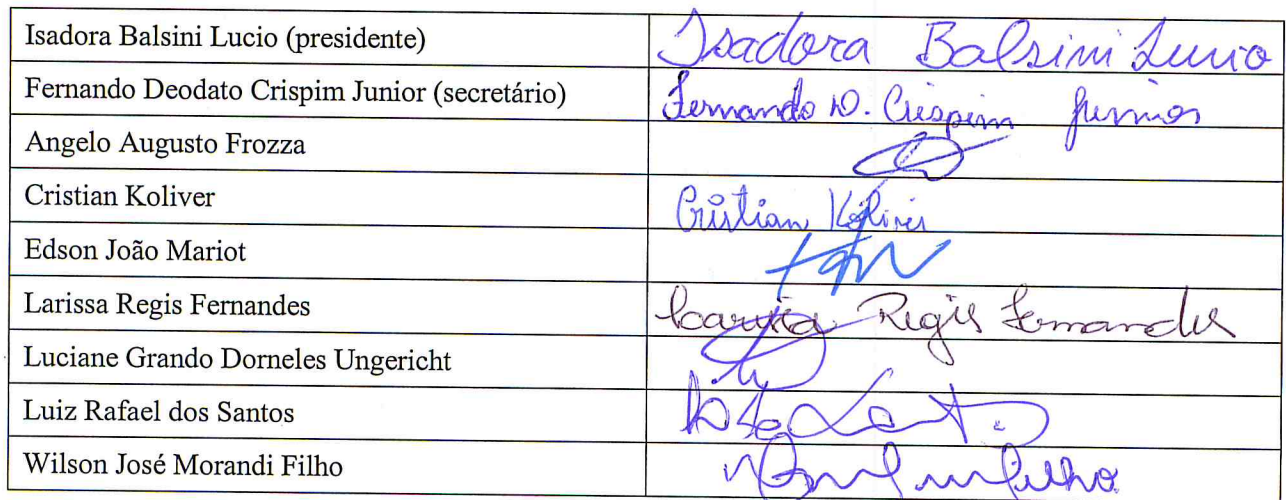 Isadora Balsini Lucio (presidente) Isadora Balsini Lucio
Fernando Deodato Crispim Junior (secretário) Fernando D. Crispim Junior
Angelo Augusto Frozza
Cristian Koliver Cristian Koliver
Edson João Mariot
Larissa Regis Fernandes Larissa Regis Fernandes
Luciane Grando Dorneles Ungericht
Luiz Rafael dos Santos
Wilson José Morandi Filho Filho